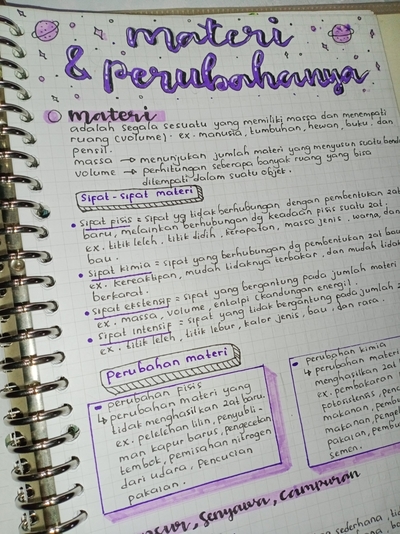 materi
& perubahannya
materi
adalah segala sesuatu yang memiliki massa dan menempati
ruang (volume). ex. manusia, tumbuhan, hewan, buku, dan
pensil.
massa → menunjukan jumlah materi yang menyusun suatu benda
volume → perhitungan seberapa banyak ruang yang bisa
ditempati dalam suatu objek.
Sifat-sifat materi
• sifat fisis = sifat yg tidak berhubungan dengan pembentukan zat
baru, melainkan berhubungan dg keadaan pisis suatu zat.
ex. titik leleh, titik didih, kerapatan, massa jenis, warna, dan
bau.
• sifat kimia = sifat yang berhubungan dg pembentukan zat
ex. kereaktipan, mudah tidaknya terbakar, dan mudah
berkarat.
• sifat ekstensif = sifat yang bergantung pada jumlah materi
ex. massa, volume, entalpi (kandungan energi).
• sifat intensif = sifat yang tidak bergantung pada jumlah
ex. titik leleh, titik lebur, kalor jenis, bau, dan rasa.
Perubahan materi
- perubahan fisis
↳ perubahan materi yang
tidak menghasilkan zat baru.
ex. pelelehan lilin, penyubli-
man kapur barus, pengecetan
tembok, pemisahan nitrogen
dari udara, pencucian
pakaian.
- perubahan kimia
↳ perubahan materi
menghasilkan zat
ex. pembakaran
fotosistesis,
makanan,
makanan,
pakaian,
semen.
, senyawa, campuran
sederhana,